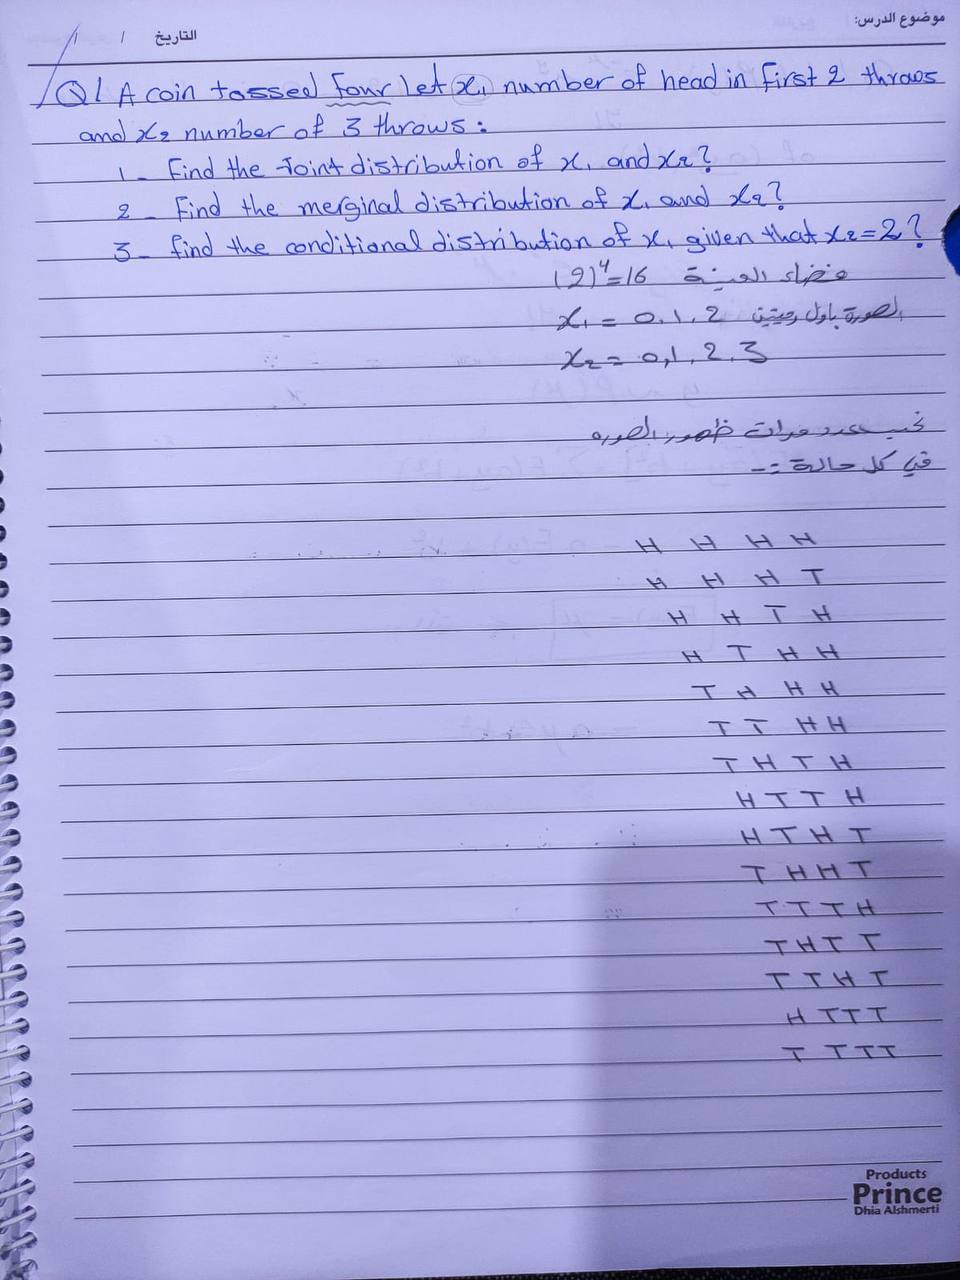 موضوع الدرس:
التاريخ / /
Q1 A coin tossed Four let x₁ number of head in first 2 throws
and x₂ number of 3 throws:
1- Find the Joint distribution of x₁ and x₂?
2- Find the merginal distribution of x₁ and x₂?
3- find the conditional distribution of x₁ given that x₂=2?
(2)⁴=16 فضاء العينة
x₁ = 0,1,2 الصورة باول رميتين
x₂ = 0,1,2,3
نحسب عدد مرات ظهور الصوره
في كل حالة :-
H H H H
H H H T
H H T H
H T H H
T H H H
T T H H
T H T H
H T T H
H T H T
T H H T
T T T H
T H T T
T T H T
H T T T
T T T T
Products
Prince
Dhia Alshmerti